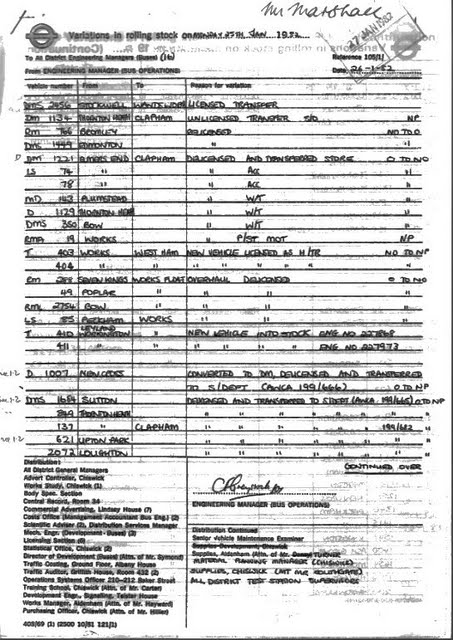 Mr Marshall
Variations in rolling stock on MONDAY 25TH JAN 1982
To All District Engineering Managers (Buses) (16)
Reference 105/1
From ENGINEERING MANAGER (BUS OPERATIONS)
Date 26-1-82
Vehicle number From To Reason for variation
DMS STOCKWELL LICENSED TRANSFER
DM 1134 THORNTON HEATH CLAPHAM UNLICENSED TRANSFER S/O NP
RM 766 BROMLEY DELICENSED NO TO O
DMS 1449 EDMONTON " "
D DM 1221 ELMERS END CLAPHAM DELICENSED AND TRANSFERRED STORE O TO NO
LS 74 " " ACC "
78 " " ACC "
MD 143 PLUMSTEAD " W/T "
D 1129 THORNTON HEATH " W/T "
DMS 350 BOW " W/T "
RMA 19 WORKS " P/ST MOT NP
T 403 WORKS WEST HAM NEW VEHICLE LICENSED AS H/TR NO TO NP
404 " " " " "
RM 288 SEVEN KINGS WORKS FLOAT OVERHAUL DELICENSED O TO NO
49 POPLAR " " " "
RML 2754 BOW " " " "
LS 85 PECKHAM WORKS " " "
T 410 LEYLAND WORKINGTON " NEW VEHICLE INTO STOCK ENG NO
411 " " " " ENG NO 227973
D 1007 NEW CROSS CONVERTED TO DM, DELICENSED AND TRANSFERRED
TO S/DEPT (ANKA 199/666) O TO NP
DMS 1684 SUTTON DELICENSED AND TRANSFERRED TO S/DEPT (ANKA 199/665) O TO NP
THORNTON HEATH " " "
137 " CLAPHAM " " " 199/652 "
621 UPTON PARK " " " "
2072 LOUGHTON " " " "
CONTINUED OVER
Distribution:
All District General Managers
Advert Controller, Chiswick
Works Study, Chiswick (1)
Body Spec. Section
Central Record, Room 34
Commercial Advertising, Lindsay House (7)
Costs Office (Management Accountant Bus Eng.) (2)
Scientific Adviser (2), Distribution Services Manager
Mech. Engr. (Development) (3)
Licensing Section (6)
Statistical Office, Chiswick (2)
Director of Development (Buses) (Attn. of Mr. Symond)
Traffic Costing, Ground Floor, Albany House
Traffic Auditor, Griffith House, Room 432 (2)
Operations Systems Officer 210-212 Baker Street
Training School, Chiswick (Attn. of Mr. Carter)
Development Engr., Signalling, Telstar House
Works Manager, Aldenham (Attn. of Mr. Hayward)
Purchasing Officer, Chiswick (Attn. of Mr. Hillier)
ENGINEERING MANAGER (BUS OPERATIONS)
Distribution Continued
Senior Vehicle Maintenance Examiner
Supplies Development Chiswick
Supplies, Aldenham (Attn. of Mr. TURNER
MATERIAL PLANNING MANAGER (CHISWICK)
SUPPLIES, CHISWICK (ATT MR SOUTHGATE)
ALL DISTRICT TEST STATION SUPERVISORS
403/69 (1) (2500 10/81 121/1)